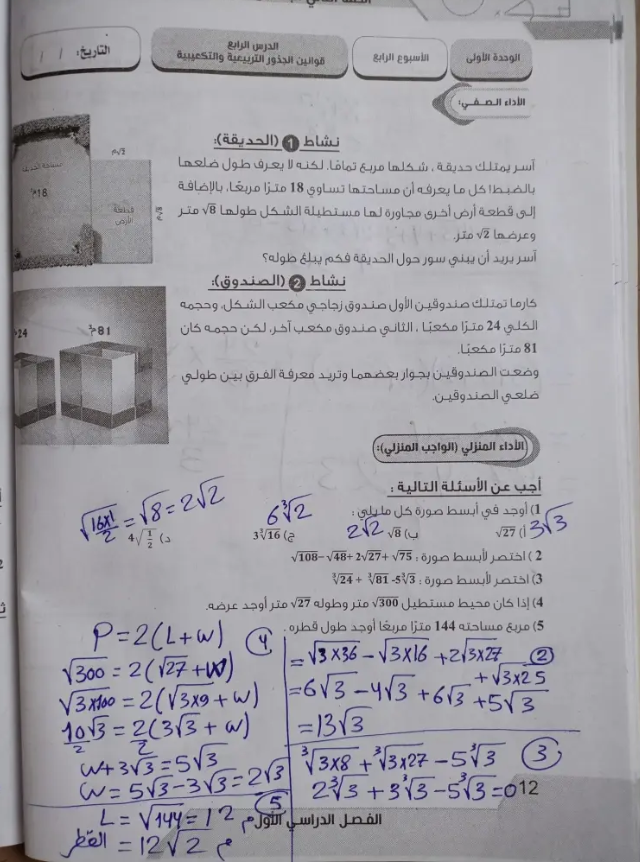 الوحدة الأولى
الأسبوع الرابع
الدرس الرابع
قوانين الجذور التربيعية والتكعيبية
التاريخ: / /
الأداء الصفي:
نشاط 1 (الحديقة):
آسر يمتلك حديقة ، شكلها مربع تمامًا، لكنه لا يعرف طول ضلعها
بالضبط! كل ما يعرفه أن مساحتها تساوي 18 مترًا مربعًا، بالإضافة
إلى قطعة أرض أخرى مجاورة لها مستطيلة الشكل طولها √8 متر
وعرضها √2 متر.
آسر يريد أن يبني سور حول الحديقة فكم يبلغ طوله؟
نشاط 2 (الصندوق):
كارما تمتلك صندوقين الأول صندوق زجاجي مكعب الشكل، وحجمه
الكلي 24 مترًا مكعبًا ، الثاني صندوق مكعب آخر، لكن حجمه كان
81 مترًا مكعبًا.
وضعت الصندوقين بجوار بعضهما وتريد معرفة الفرق بين طولي
ضلعي الصندوقين.
الأداء المنزلي (الواجب المنزلي):
أجب عن الأسئلة التالية :
1) أوجد في أبسط صورة كل مايلي :
أ) √27 3√3
ب) √8 2√2
ج) 3∛16 6∛2
د) 4√(1/2) √(16×1/2) = √8 = 2√2
2 ) اختصر لأبسط صورة : √108 - √48 + 2√27 + √75
3) اختصر لأبسط صورة : ∛24 + ∛81 - 5∛3
4) إذا كان محيط مستطيل √300 متر وطوله √27 متر أوجد عرضه.
5) مربع مساحته 144 مترًا مربعًا أوجد طول قطره .
4
P = 2(L + W)
√300 = 2(√27 + W)
√3×100 = 2(√3×9 + W)
10√3/2 = 2/2(3√3 + W)
W + 3√3 = 5√3
W = 5√3 - 3√3 = 2√3
2
= √3×36 - √3×16 + 2√3×27 + √3×25
= 6√3 - 4√3 + 6√3 + 5√3
= 13√3
3
∛3×8 + ∛3×27 - 5∛3
2∛3 + 3∛3 - 5∛3 = 0
5
L = √144 = 12 م
القطر = 12√2 م
12
الفصل الدراسي الأول